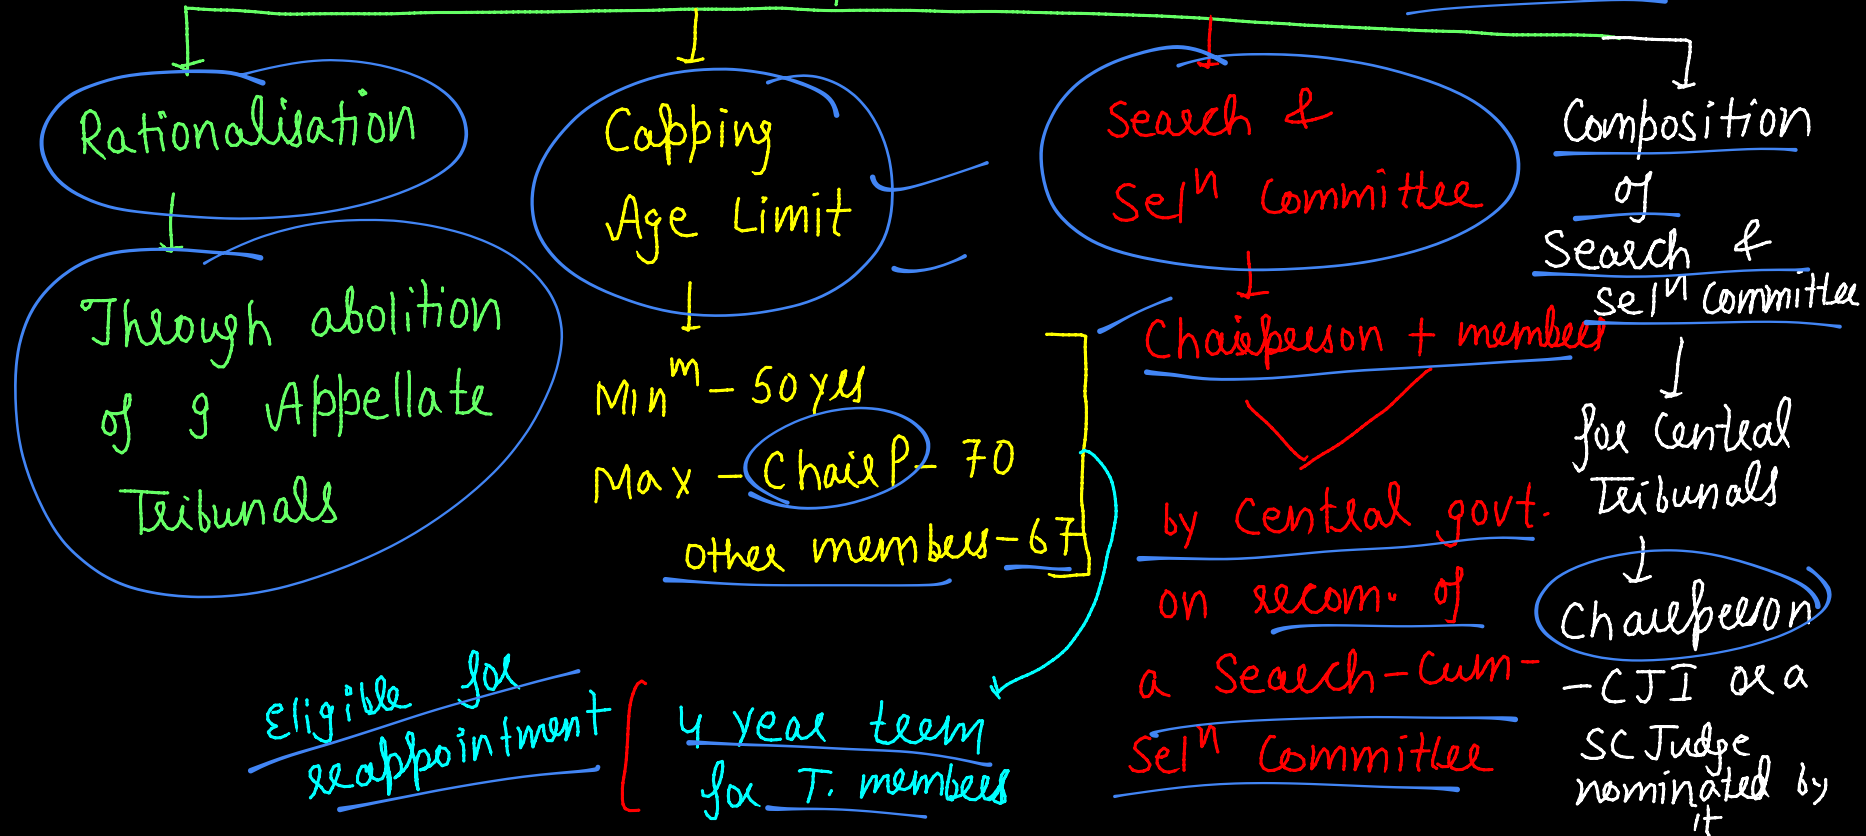 Rationalisation
Through abolition
of 9 Appellate
Tribunals
Capping
Age Limit
Minᵐ - 50 yrs
Max - ChairP - 70
other members - 67
4 year term
for T. members
Eligible for
reappointment
Search &
Selⁿ Committee
Chairperson + members
by Central govt.
on recom. of
a Search-Cum-
Selⁿ Committee
Composition
of
Search &
Selⁿ Committee
for Central
Tribunals
Chairperson
- CJI or a
SC Judge
nominated by
it